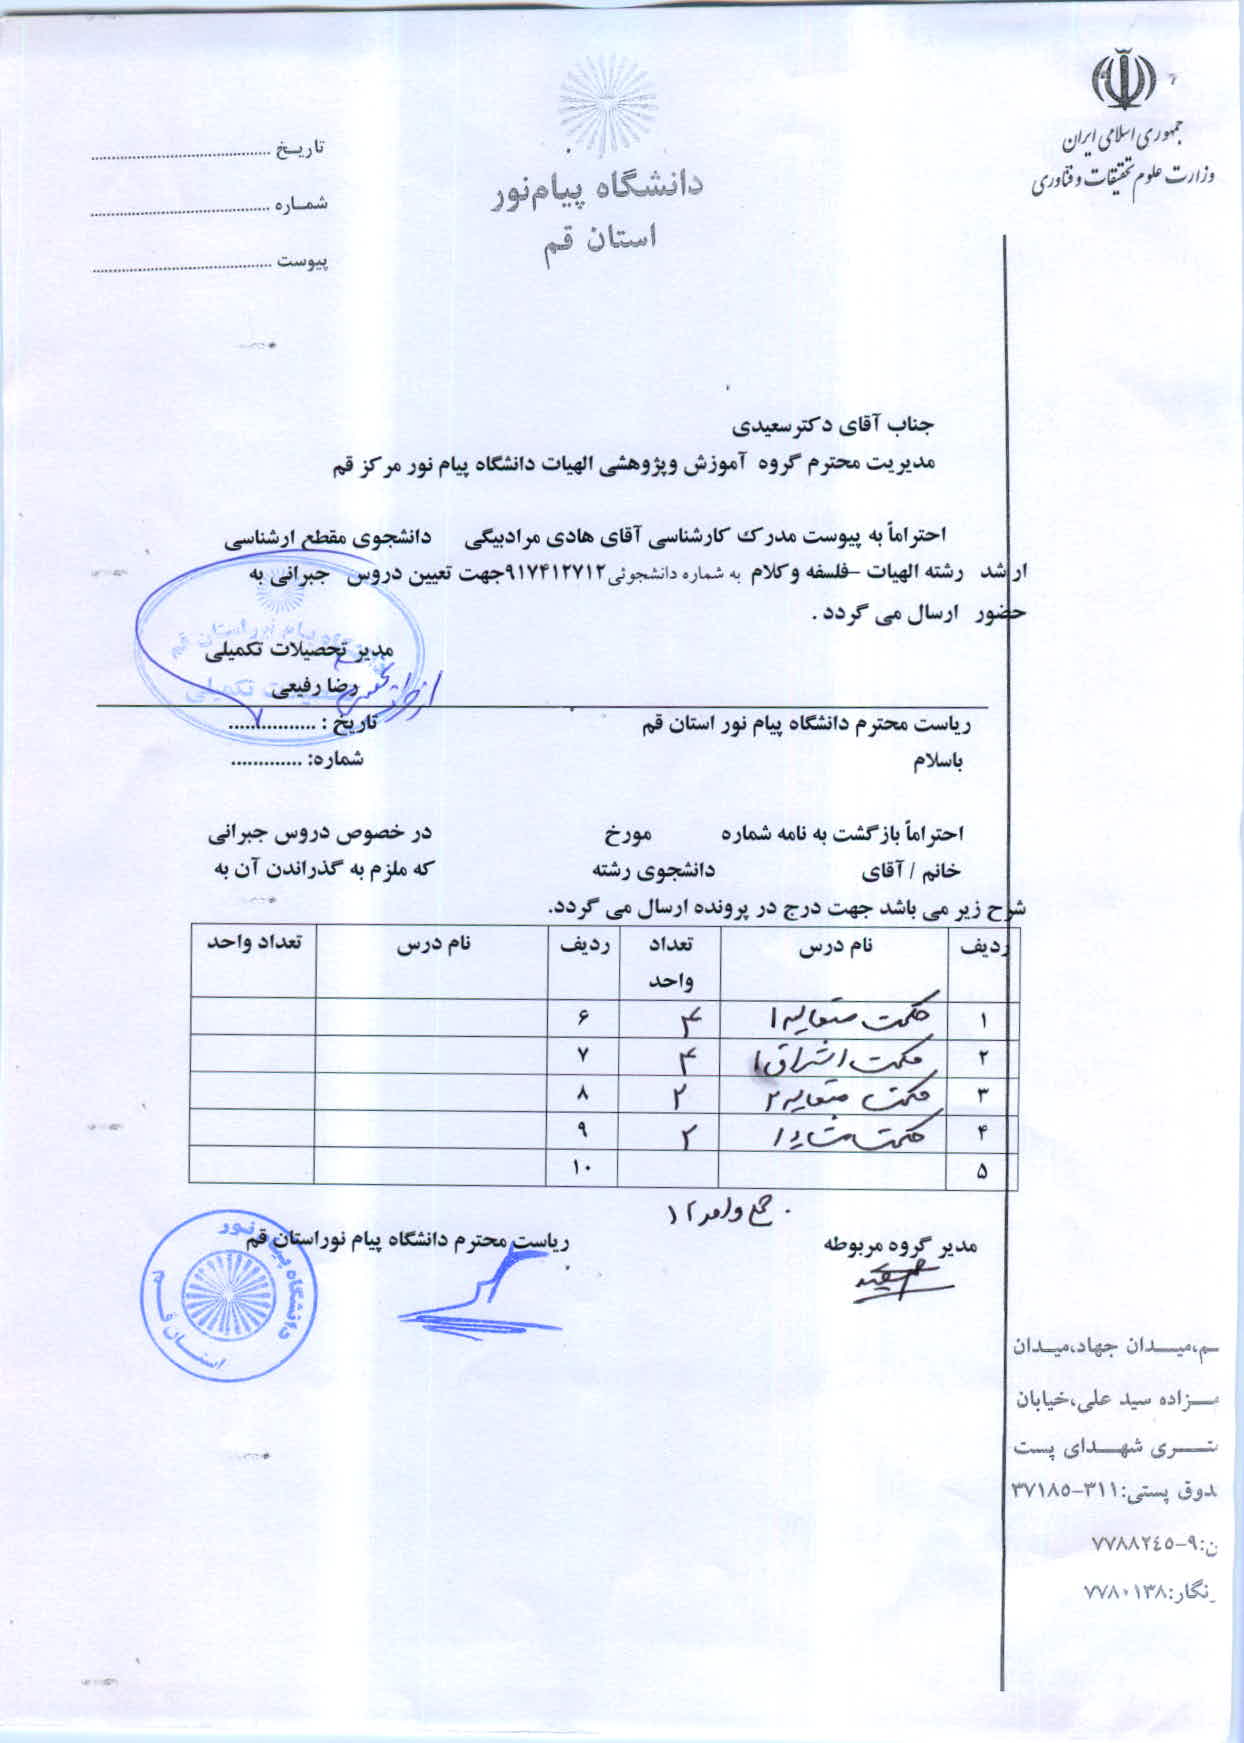 جمهوری اسلامی ایران
وزارت علوم تحقیقات و فناوری
دانشگاه پیام‌نور
استان قم
تاریخ ........................................
شماره ........................................
پیوست ........................................
جناب آقای دکترسعیدی
مدیریت محترم گروه آموزش وپژوهشی الهیات دانشگاه پیام نور مرکز قم
احتراماً به پیوست مدرک کارشناسی آقای هادی مرادبیگی دانشجوی مقطع ارشناسی
ارشد رشته الهیات –فلسفه وکلام به شماره دانشجوئی۹۱۷۴۱۲۷۱۲جهت تعیین دروس جبرانی به
حضور ارسال می گردد .
دانشگاه پیام نوراستان قم
مدیر تحصیلات تکمیلی
رضا رفیعی
تحصیلات تکمیلی
ریاست محترم دانشگاه پیام نور استان قم تاریخ : ................
باسلام شماره: .............
احتراماً بازگشت به نامه شماره مورخ در خصوص دروس جبرانی
خانم / آقای دانشجوی رشته که ملزم به گذراندن آن به
شرح زیر می باشد جهت درج در پرونده ارسال می گردد.
ردیف نام درس تعداد واحد ردیف نام درس تعداد واحد
۱ حکمت متعالیه ۱ ۴ ۶
۲ حکمت اشراق ۱ ۴ ۷
۳ حکمت متعالیه ۲ ۲ ۸
۴ حکمت مشاء ۱ ۲ ۹
۵ ۱۰
جمع واحد ۱۲
مدیر گروه مربوطه ریاست محترم دانشگاه پیام نوراستان قم
دانشگاه پیام نور
استان قم
ـم،میـدان جهاد،میـدان
ـزاده سید علی،خیابان
ـری شهـدای پست
ـدوق پستی:۳۱۱-۳۷۱۸۵
ن:۹-۷۷۸۸۲٤٥
ـنگار:۷۷۸۰۱۳۸